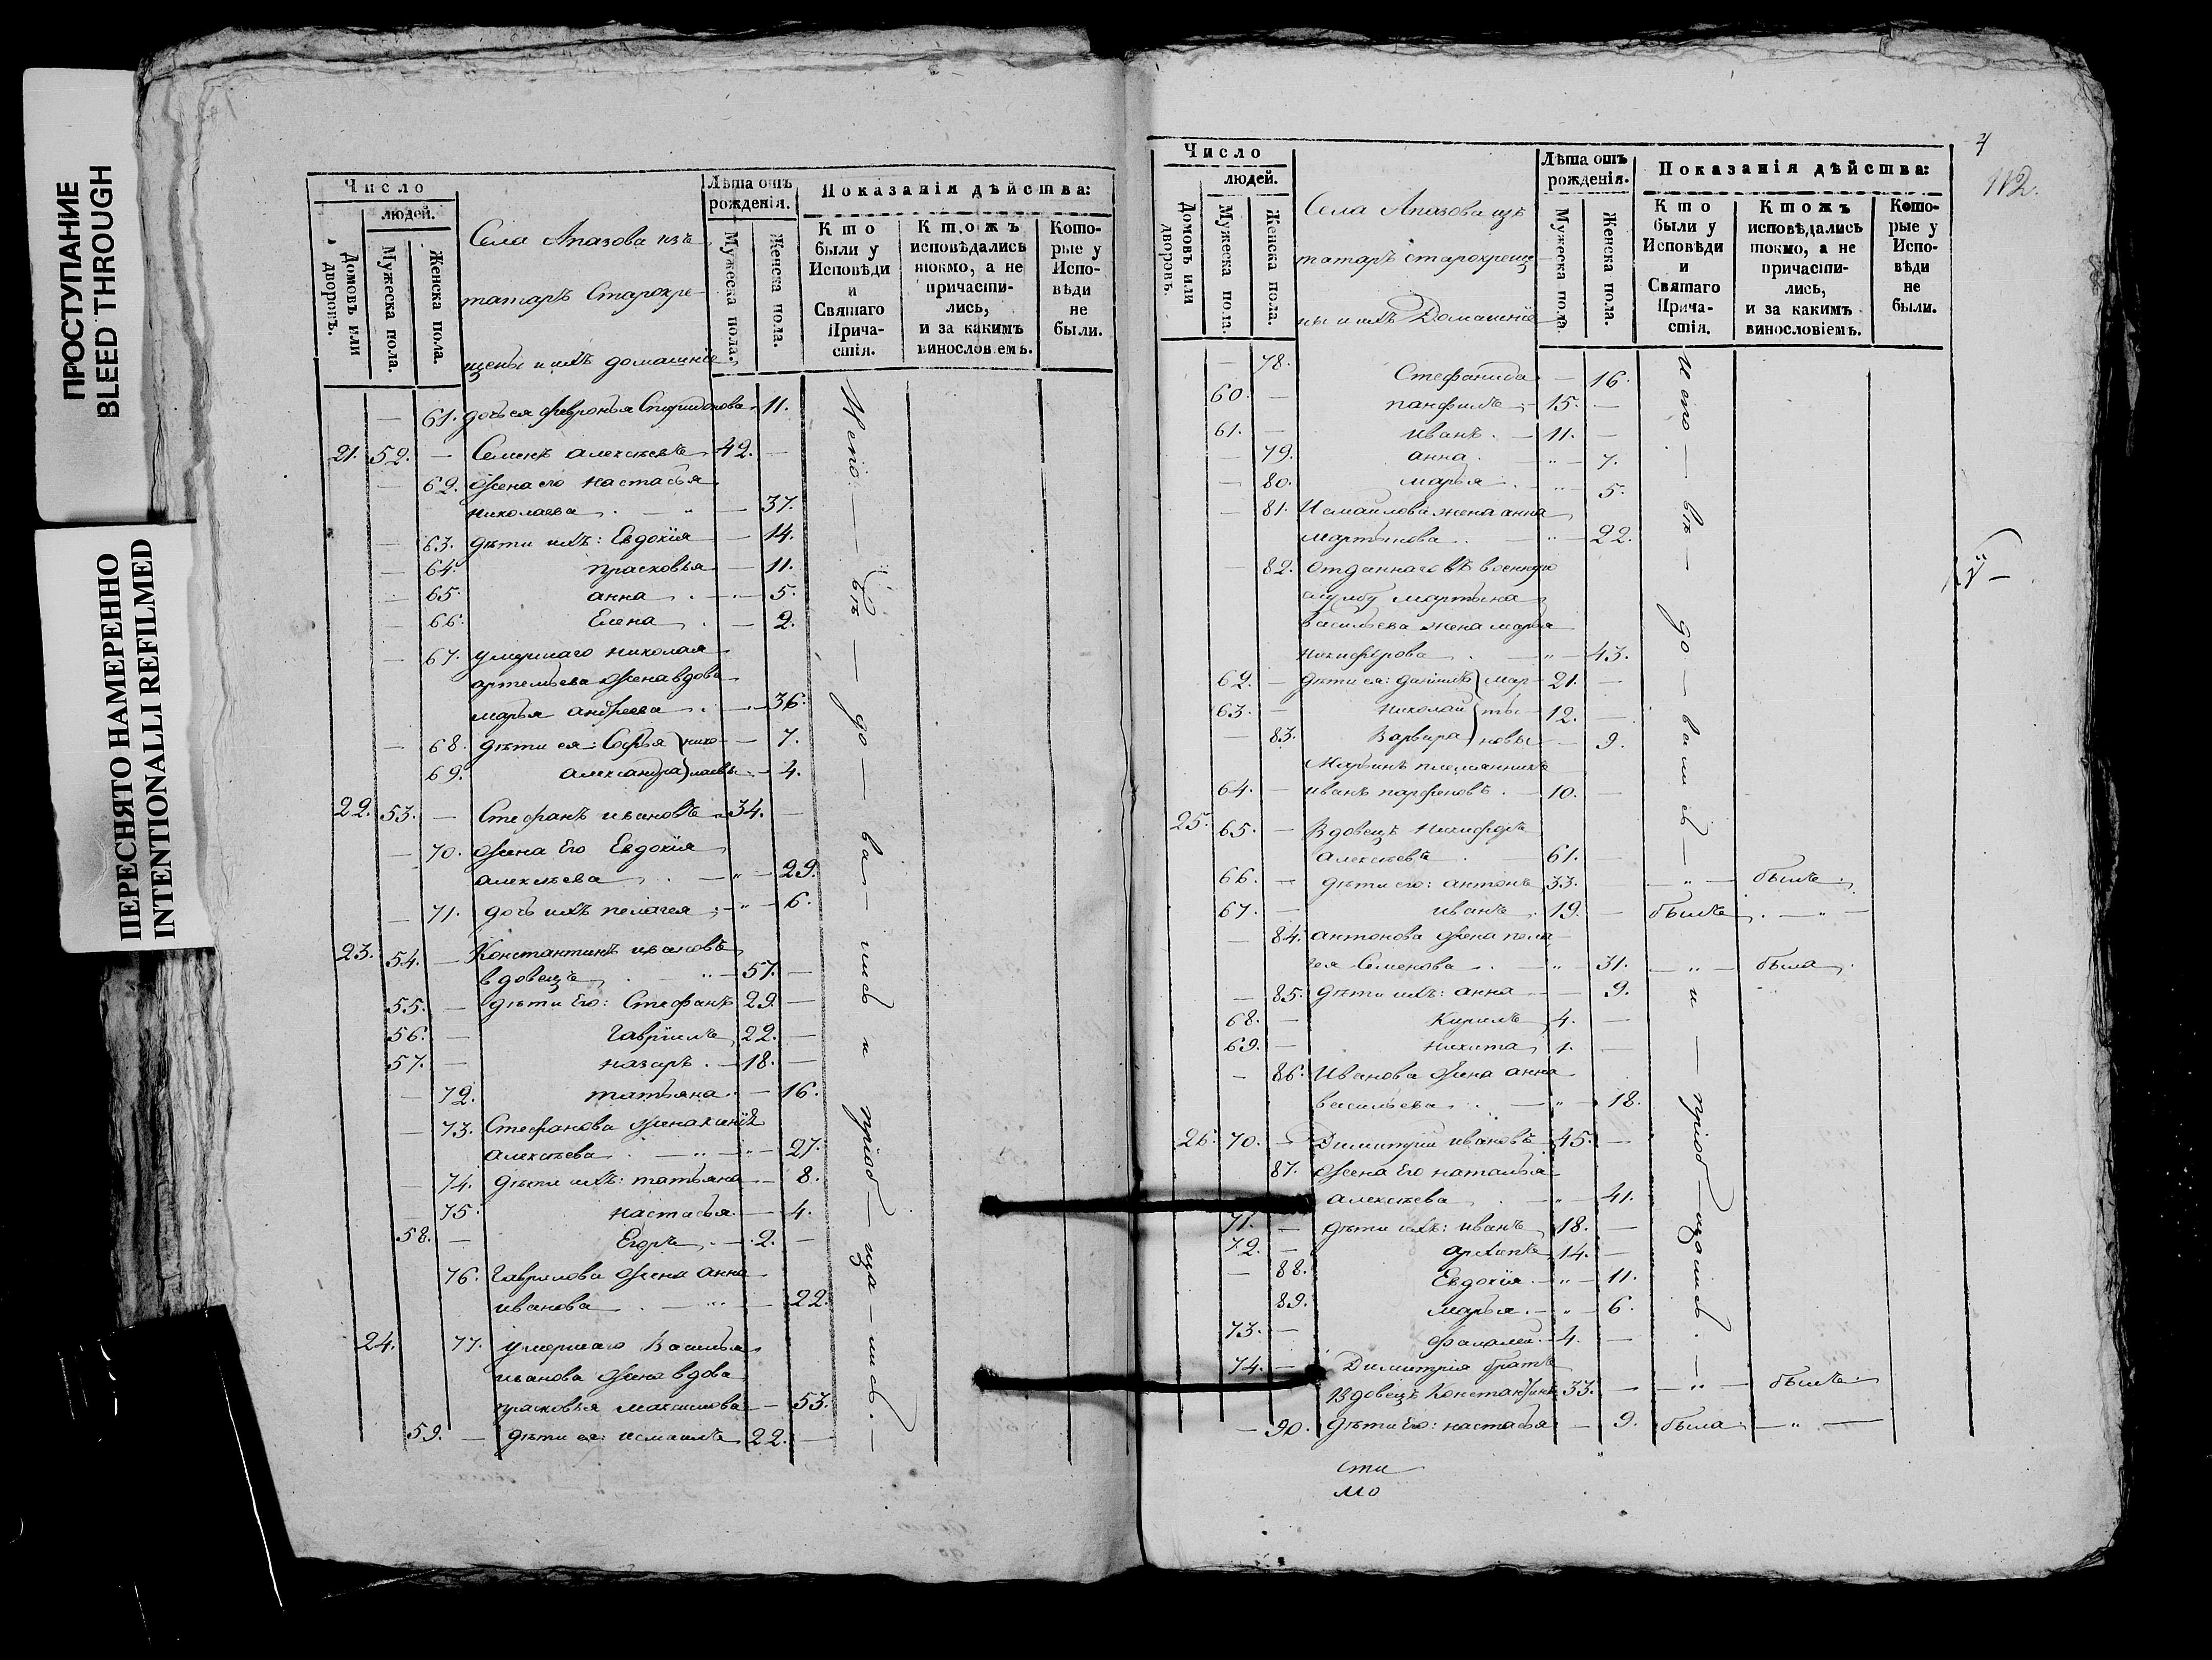 ПРОСТУПАНИЕ
BLEED THROUGH
ПЕРЕСНЯТО НАМЕРЕННО
INTENTIONALLI REFILMED
Число
людей.
Домовъ или дворовъ.
Мужеска пола.
Женска пола.
Села Апазова изъ
татаръ Старокре-
щены и ихъ домашніе
Лѣта отъ рожденія.
Мужеска пола.
Женска пола.
Показанія дѣйства:
Кто были у Исповѣди и Святаго Прича-стія.
Ктожъ исповѣдались токмо, а не причасти-лись, и за какимъ винословіемъ.
Кото-рые у Испо-вѣди не были.
— 61. дочь ея Февронья Спиридонова — 11.
21. 52. — Семенъ Алексѣевъ 42. —
— 62. Жена его Настасья
Николаева . — " — 37.
— 63. дѣти ихъ: Евдокія — 14.
— 64. Прасковья — 11.
— 65. анна . — 5.
— 66. Елена . — 2.
— 67. умершаго Николая
артемьева Жена вдова
марья андреева . — 36.
— 68. дѣти ея: Софья } нико- — 7.
69. александра } лаевы — 4.
22. 53. — Стефанъ ивановъ 34. —
— 70. Жена Его Евдокія
алексѣева . — " — 29.
— 71. дочь ихъ пелагея — " — 6.
23. 54. — Константинъ ивановъ
вдовецъ . " — 57. —
55. — дѣти Его: Стефанъ 29. —
56. — Гавріилъ 22. —
57. — назаръ . — 18. —
— 72. татьяна . — 16.
— 73. Стефанова Жена
алексѣева . — " — 27.
— 74. дѣти ихъ: татьяна — 8.
— 75. настасья — 4.
58. — Егоръ . — 2. —
76. Гаврилова Жена анна
иванова . — " — 22.
24. 77. умершаго Василья
иванова Жена вдова
прасковья максимова — 53.
59. — дѣти ея: исмаилъ 22. —
Испо — вѣ — до — ва — лись и пріоб — ща — лись. —
4
112.
Число
людей.
Домовъ или дворовъ.
Мужеска пола.
Женска пола.
Села Апазова изъ
татаръ старокрещ
ны и ихъ Домашніе
Лѣта отъ рожденія.
Мужеска пола.
Женска пола.
Показанія дѣйства:
Кто были у Исповѣди и Святаго Прича-стія.
Ктожъ исповѣдались токмо, а не причасти-лись, и за какимъ винословіемъ.
Кото-рые у Испо-вѣди не были.
— 78. Стефанида — 16.
60. — панфилъ — 15. —
61. — иванъ . — 11. —
— 79. анна . — " — 7.
— 80. марья . — " — 5.
— 81. Исмаилова жена анна
мартынова . — " — 22.
— 82. Отданнаго въ военную
службу мартына
Васильева жена марья
никифорова . — " — 43.
62. — дѣти ея: даніилъ } мар- 21. —
63. — Николай } ты- 12. —
— 83. Варвара } новы — 9.
Марьинъ племянникъ
64. — иванъ парфеновъ . — 10. —
25. 65. — Вдовецъ Никифоръ
алексѣевъ . — 61. —
66. — дѣти его: антонъ 33. — " — былъ.
67. — иванъ . 19. — былъ . — " —
— 84. антонова Жена пела-
гея Семенова . — " — 31. — " — была.
— 85. дѣти ихъ: анна — 9.
68. — Кирилъ 4. —
69. — никита 1. —
— 86. Иванова Жена анна
васильева . — " — 18.
26. 70. — Димитрій ивановъ 45. —
87. Жена Его наталья
алексѣева . — " — 41.
71. — дѣти ихъ: иванъ 18. —
72. — архипъ 14. —
— 88. Евдокія . — " — 11.
89. марья . — " — 6.
73. — 4. —
74. — Димитрія братъ
Вдовецъ Константинъ 33. — — " — былъ.
— 90. дѣти Его: настасья — 9. была — " —
Испо — вѣ — до — вались — и — пріоб — щались. —
сти
мо